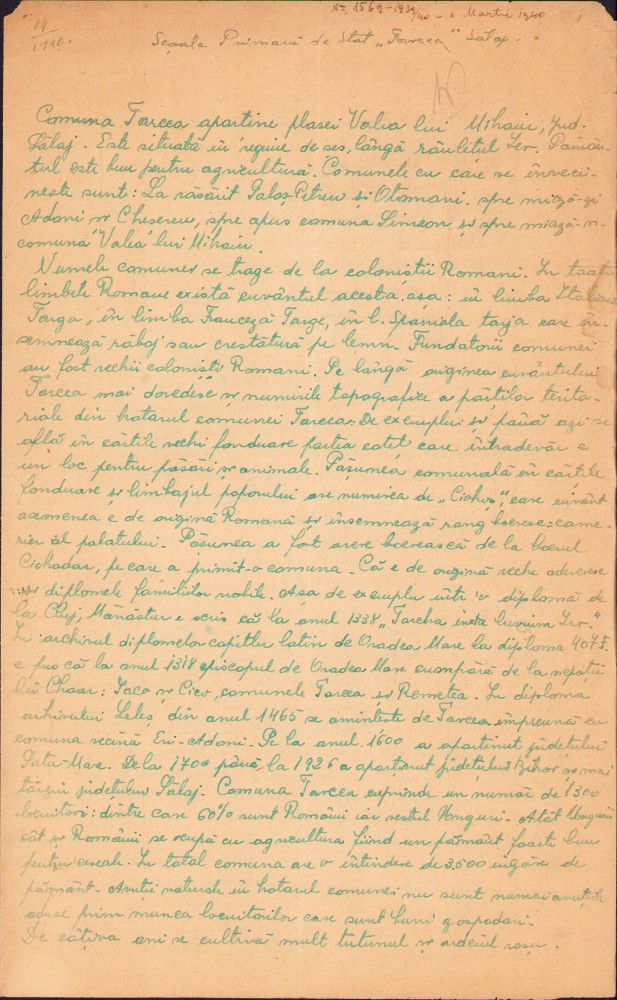 Nr. 1569-1939/40 - 6 Martie 1940
14/1940.
Școala Primară de Stat „Tarcea” Sălaj.
Comuna Tarcea aparține plasei Valea lui Mihaiu, jud.
Sălaj. Este situată în regiune de șes, lângă râulețul Ier. Pămân-
tul este bun pentru agricultură. Comunele cu care se înveci-
nește sunt: La răsărit Galoș-Petreu și Otomani, spre miază-zi
Adoni și Chesereu, spre apus comuna Simeon și spre miază-n.
comuna Valea lui Mihaiu.
Numele comunei se trage de la coloniștii Romani. În toate
limbile Romane există cuvântul acesta, așa: în limba Italiană
Targa, în limba Franceză Targe, în l. Spaniola tarja care în-
semnează răboj sau crestătură pe lemn. Fundatorii comunei
au fost vechii coloniști Romani. Pe lângă originea cuvântului
Tarcea mai dovedește și numirile topografice a părților terito-
riale din hotarul comunei Tarcea. De exemplu: și până azi se
află în cărțile vechi fonduare partea cotet care întradevăr e
un loc pentru păsări și animale. Pășunea comunală în cărțile
fonduare și limbajul poporului are numirea de „ care cuvânt
asemenea e de origină Romană și însemnează rang boeresc = came-
rier al palatului. Pășunea a fost avere boerească de la boerul
Ciohodar, pe care a primit-o comuna. Că e de origină veche adeveresc
și diplomele familiilor nobile. Așa de exemplu într'o diplomă de
la Cluj, Mănăștur e scris că la anul 1338 „Tarcha Ier.”
În archivul diplomelor capitlu latin de Oradea Mare la diploma 407 F.
e pus că la anul 1318 episcopul de Oradea Mare cumpără de la nepoții
lui Chasar: Iaco și Cico, comunele Tarcea și Remetea. În diploma
archivului Leleș din anul 1465 se amintește de Tarcea împreună cu
comuna vecină Eri-Adoni. Pe la anul 1600 a aparținut județului
Satu-Mare. De la 1700 până la 1926 a aparținut județului Bihor și mai
târziu județului Sălaj. Comuna Tarcea cuprind un număr de 1300
locuitori: dintre care 60% sunt Români iar restul Unguri. Atât Ungurii
cât și Românii se ocupă cu agricultura fiind un pământ foarte bun
pentru cereale. În total comuna are o întindere de 3.500 iugăre de
pământ. Avuții naturale în hotarul comunei nu sunt numai avuțiile
aduse prim munca locuitorilor care sunt buni gospodari.
De câțiva ani se cultivă mult tutunul și ardeiul roșu.